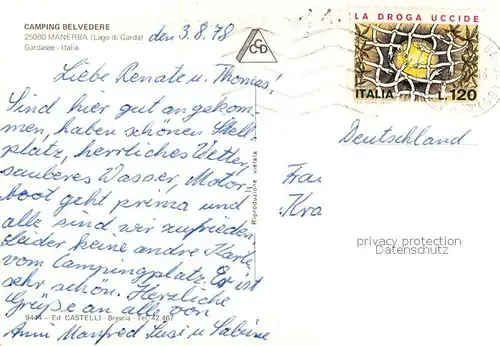 CAMPING BELVEDERE
25080 MANERBA (Lago di Garda)
Gardasee - Italia
den 3.8.78
CSD
LA DROGA UCCIDE
ITALIA L.120
Liebe Renate u. Thomas!
Sind hier gut angekom
men, haben schönen Stell
platz, herrliches Wetter,
sauberes Wasser, Motor-
boot geht prima und
alle sind wir zufrieden
leider keine andre Karte
vom Campingplatz. Er ist
sehr schön. Herzliche
Grüße an alle von
Anni Manfred Susi u. Sabine
Deutschland
Frau
Kra
Riproduzione vietata
privacy protection
DELCAMPE
9444 - Ed. CASTELLI - Brescia - Tel. 42.467